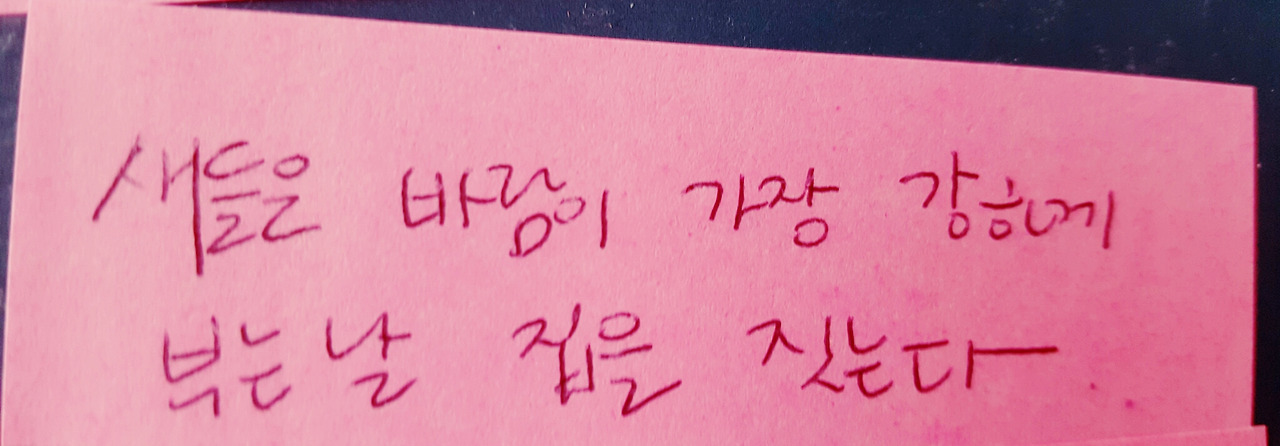 새들은 바람이 가장 강하게
부는날 집을 짓는다